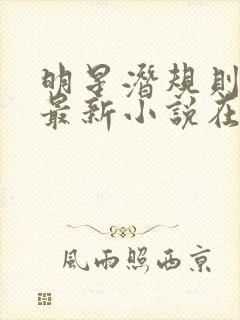 明星潛規則
最新小說在
風雨照西京